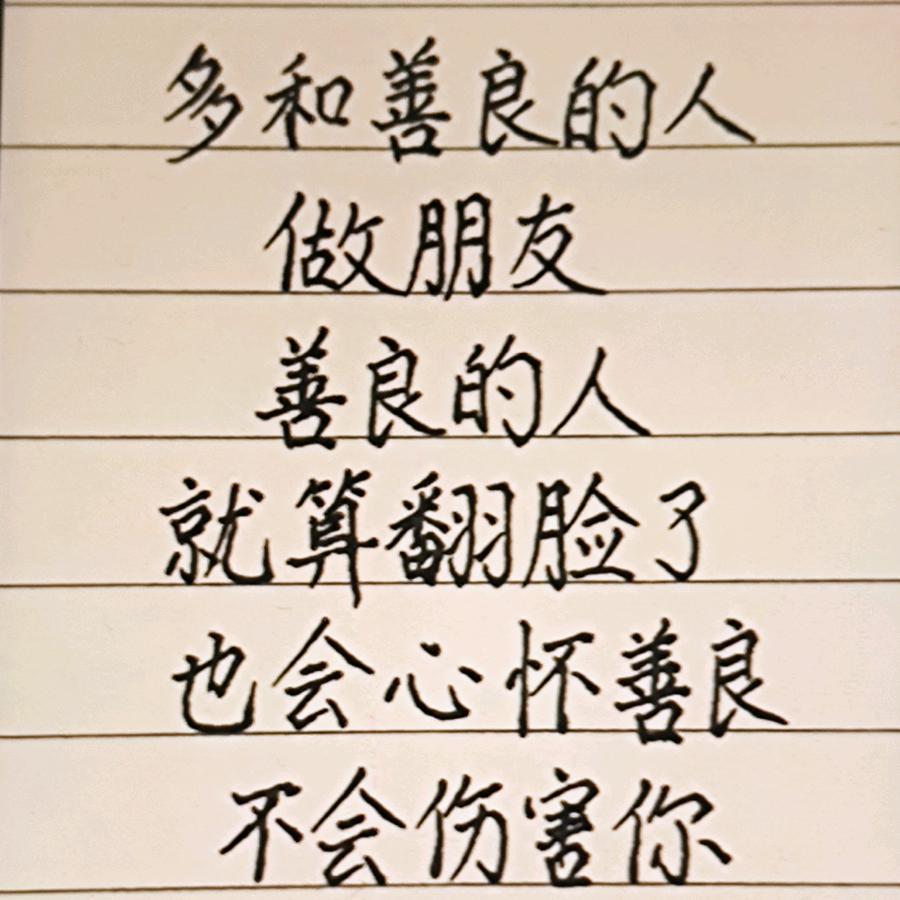 多和善良的人
做朋友
善良的人
就算翻脸了
也会心怀善良
不会伤害你